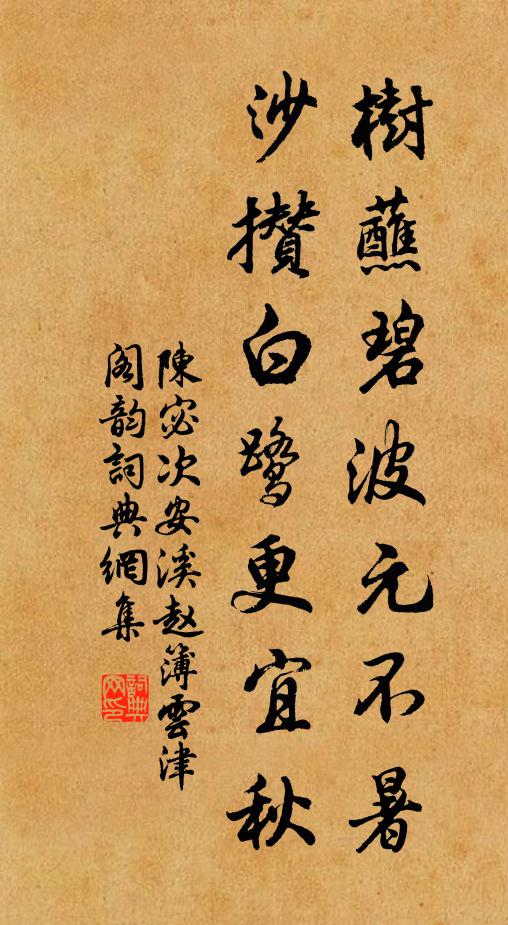 樹蘸碧波元不暑
沙攢白鹭更宜秋
陳宓次安溪赵簿雲津
阁韵詞典網集
詞典網印